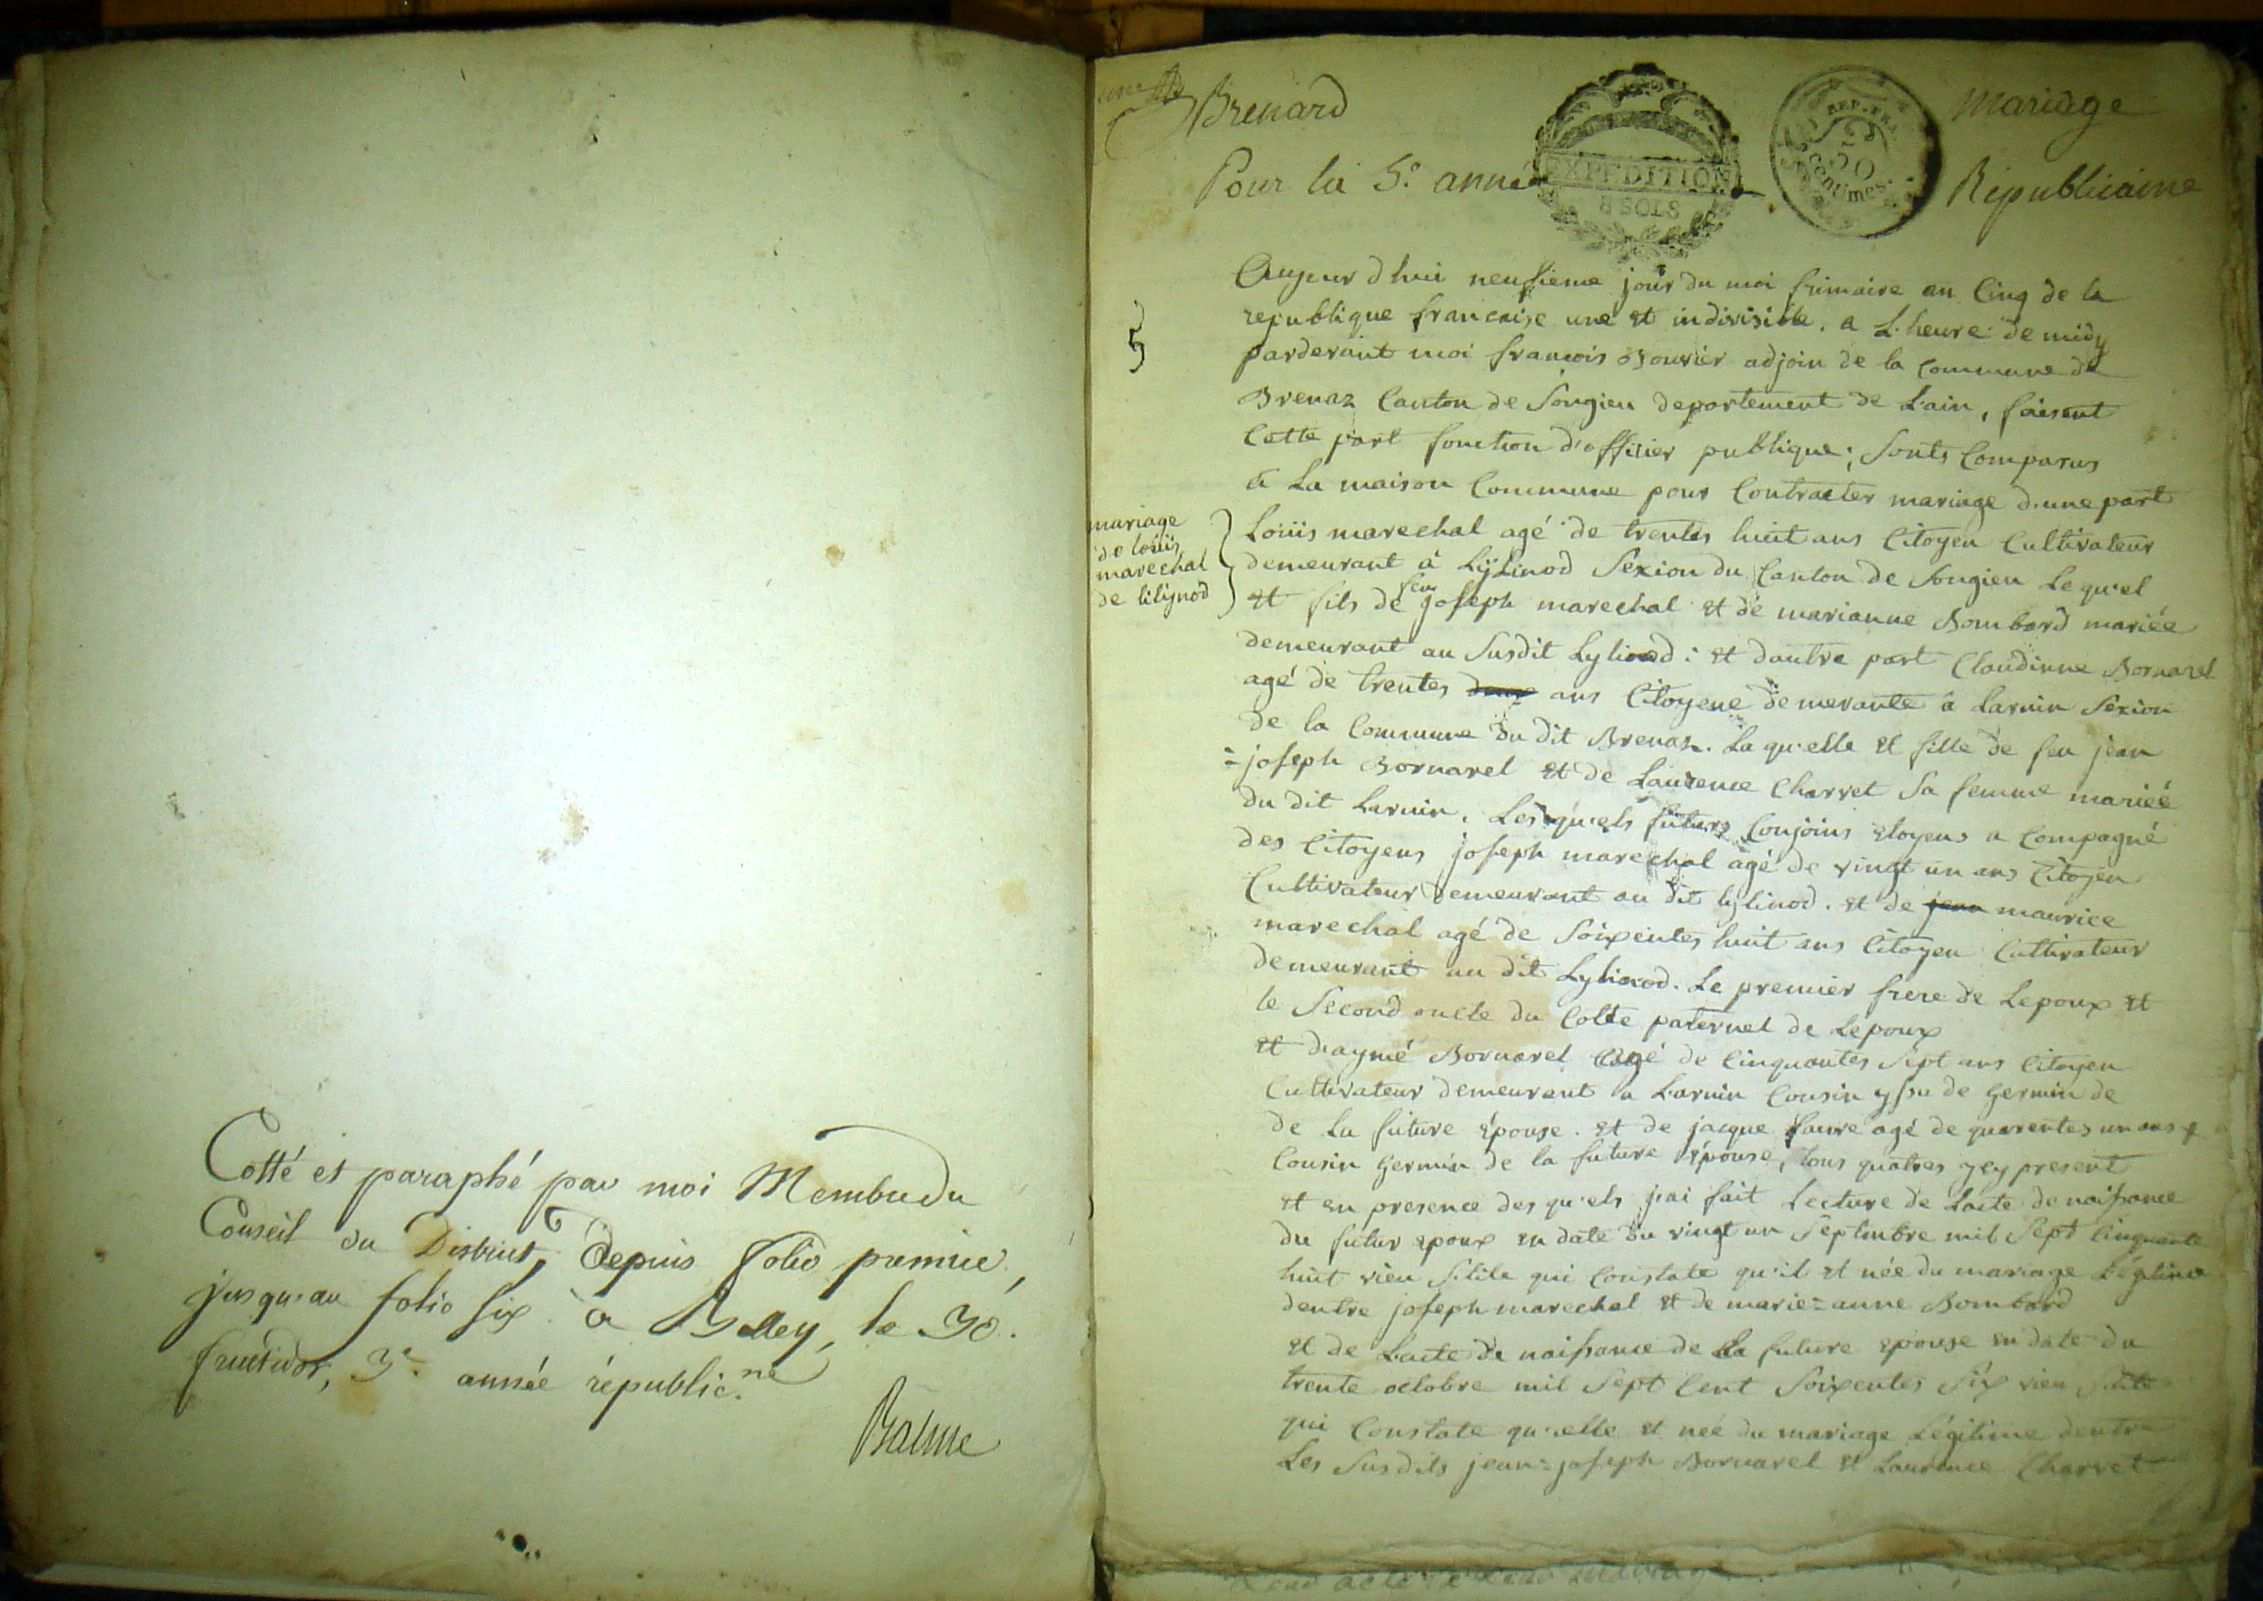 Cotté et paraphé par moi Membre du
Conseil du District, depuis folio premier,
jusqu'au folio six. à Belley, le 30.
fructidor, 3.e année républic.ne
Balme
Brenard
mariage
Pour la 5.e année
Républicaine
EXPEDITION
REP. FRA.
50
Centimes.
5
Aujour dhui neufieme jour du moi frimaire an Cinq de la
republique francaise une et indivisible. a L'heure de midy
pardevant moi francois Bouvier adjoin de la Commune de
Brenaz Canton de Songieu departement de L'ain, faisent
Cette part fonction d'offisier publique; Sonts Comparus
à La maison Commune pour Contracter mariage d'une part
mariage
de loüis
marechal
de lilignod
Loüis marechal agé de trentes huit ans Citoyen Cultivateur
demeurant à Lÿlinod Sexion du Canton de Songieu Lequ'el
et fils de feu joseph marechal et de marianne Bombard mariée
demeurant au Susdit Lylinod: et dautre part Claudinne Bornarel
agé de trentes deux ans Citoyene demeurante à Larnin Sexion
de la Commune du dit Brenaz. La qu'elle et fille de feu jean
=joseph Bornarel et de Laurence Charvet Sa femme mariéé
du dit Larnin. Les qu'els futurs Conjoins etoyens a Compagné
des Citoyens joseph marechal agé de vingt un ans Citoyen
Cultivateur demeurant au dit lylinod. et de jean maurice
marechal agé de Soixentes huit ans Citoyen Cultivateur
demeurant au dit Lylinod. Le premier frere de Lepoux et
le Second oncle du Cotte paternel de Lepoux
et d'aymé Bornarel agé de Cinquantes Sept ans Citoyen
Cultivateur demeurant a Larnin Cousin yssu de Germin de
de La future épouse. et de jacque faure agé de quarentes un ans
Cousin Germin de la future épouse, tous quatres yey present
et en presence des qu'els j'ai fait Lecture de Lacte de naissance
du futur epoux en date du vingt un Septembre mil Sept Cinquante
huit vieu Stile qui Constate qu'il et née du mariage Légitime
dentre joseph marechal et de marie=anne Bombard
et de Lacte de naissance de La future epouse en date du
trente octobre mil Sept Cent Soixentes Six vieu Stile
qui Constate qu'elle et née du mariage Légitime dentre
Les Susdits jean=joseph Bornarel et Laurence Charvet